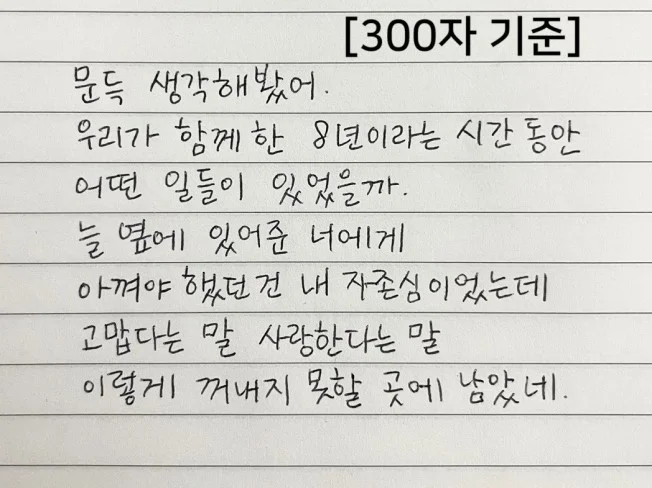 [300자 기준]
문득 생각해봤어.
우리가 함께한 8년이라는 시간동안
어떤 일들이 있었을까.
늘 옆에 있어준 너에게
아껴야 했던건 내 자존심이었는데
고맙다는 말 사랑한다는 말
이렇게 꺼내지 못할 곳에 남았네.